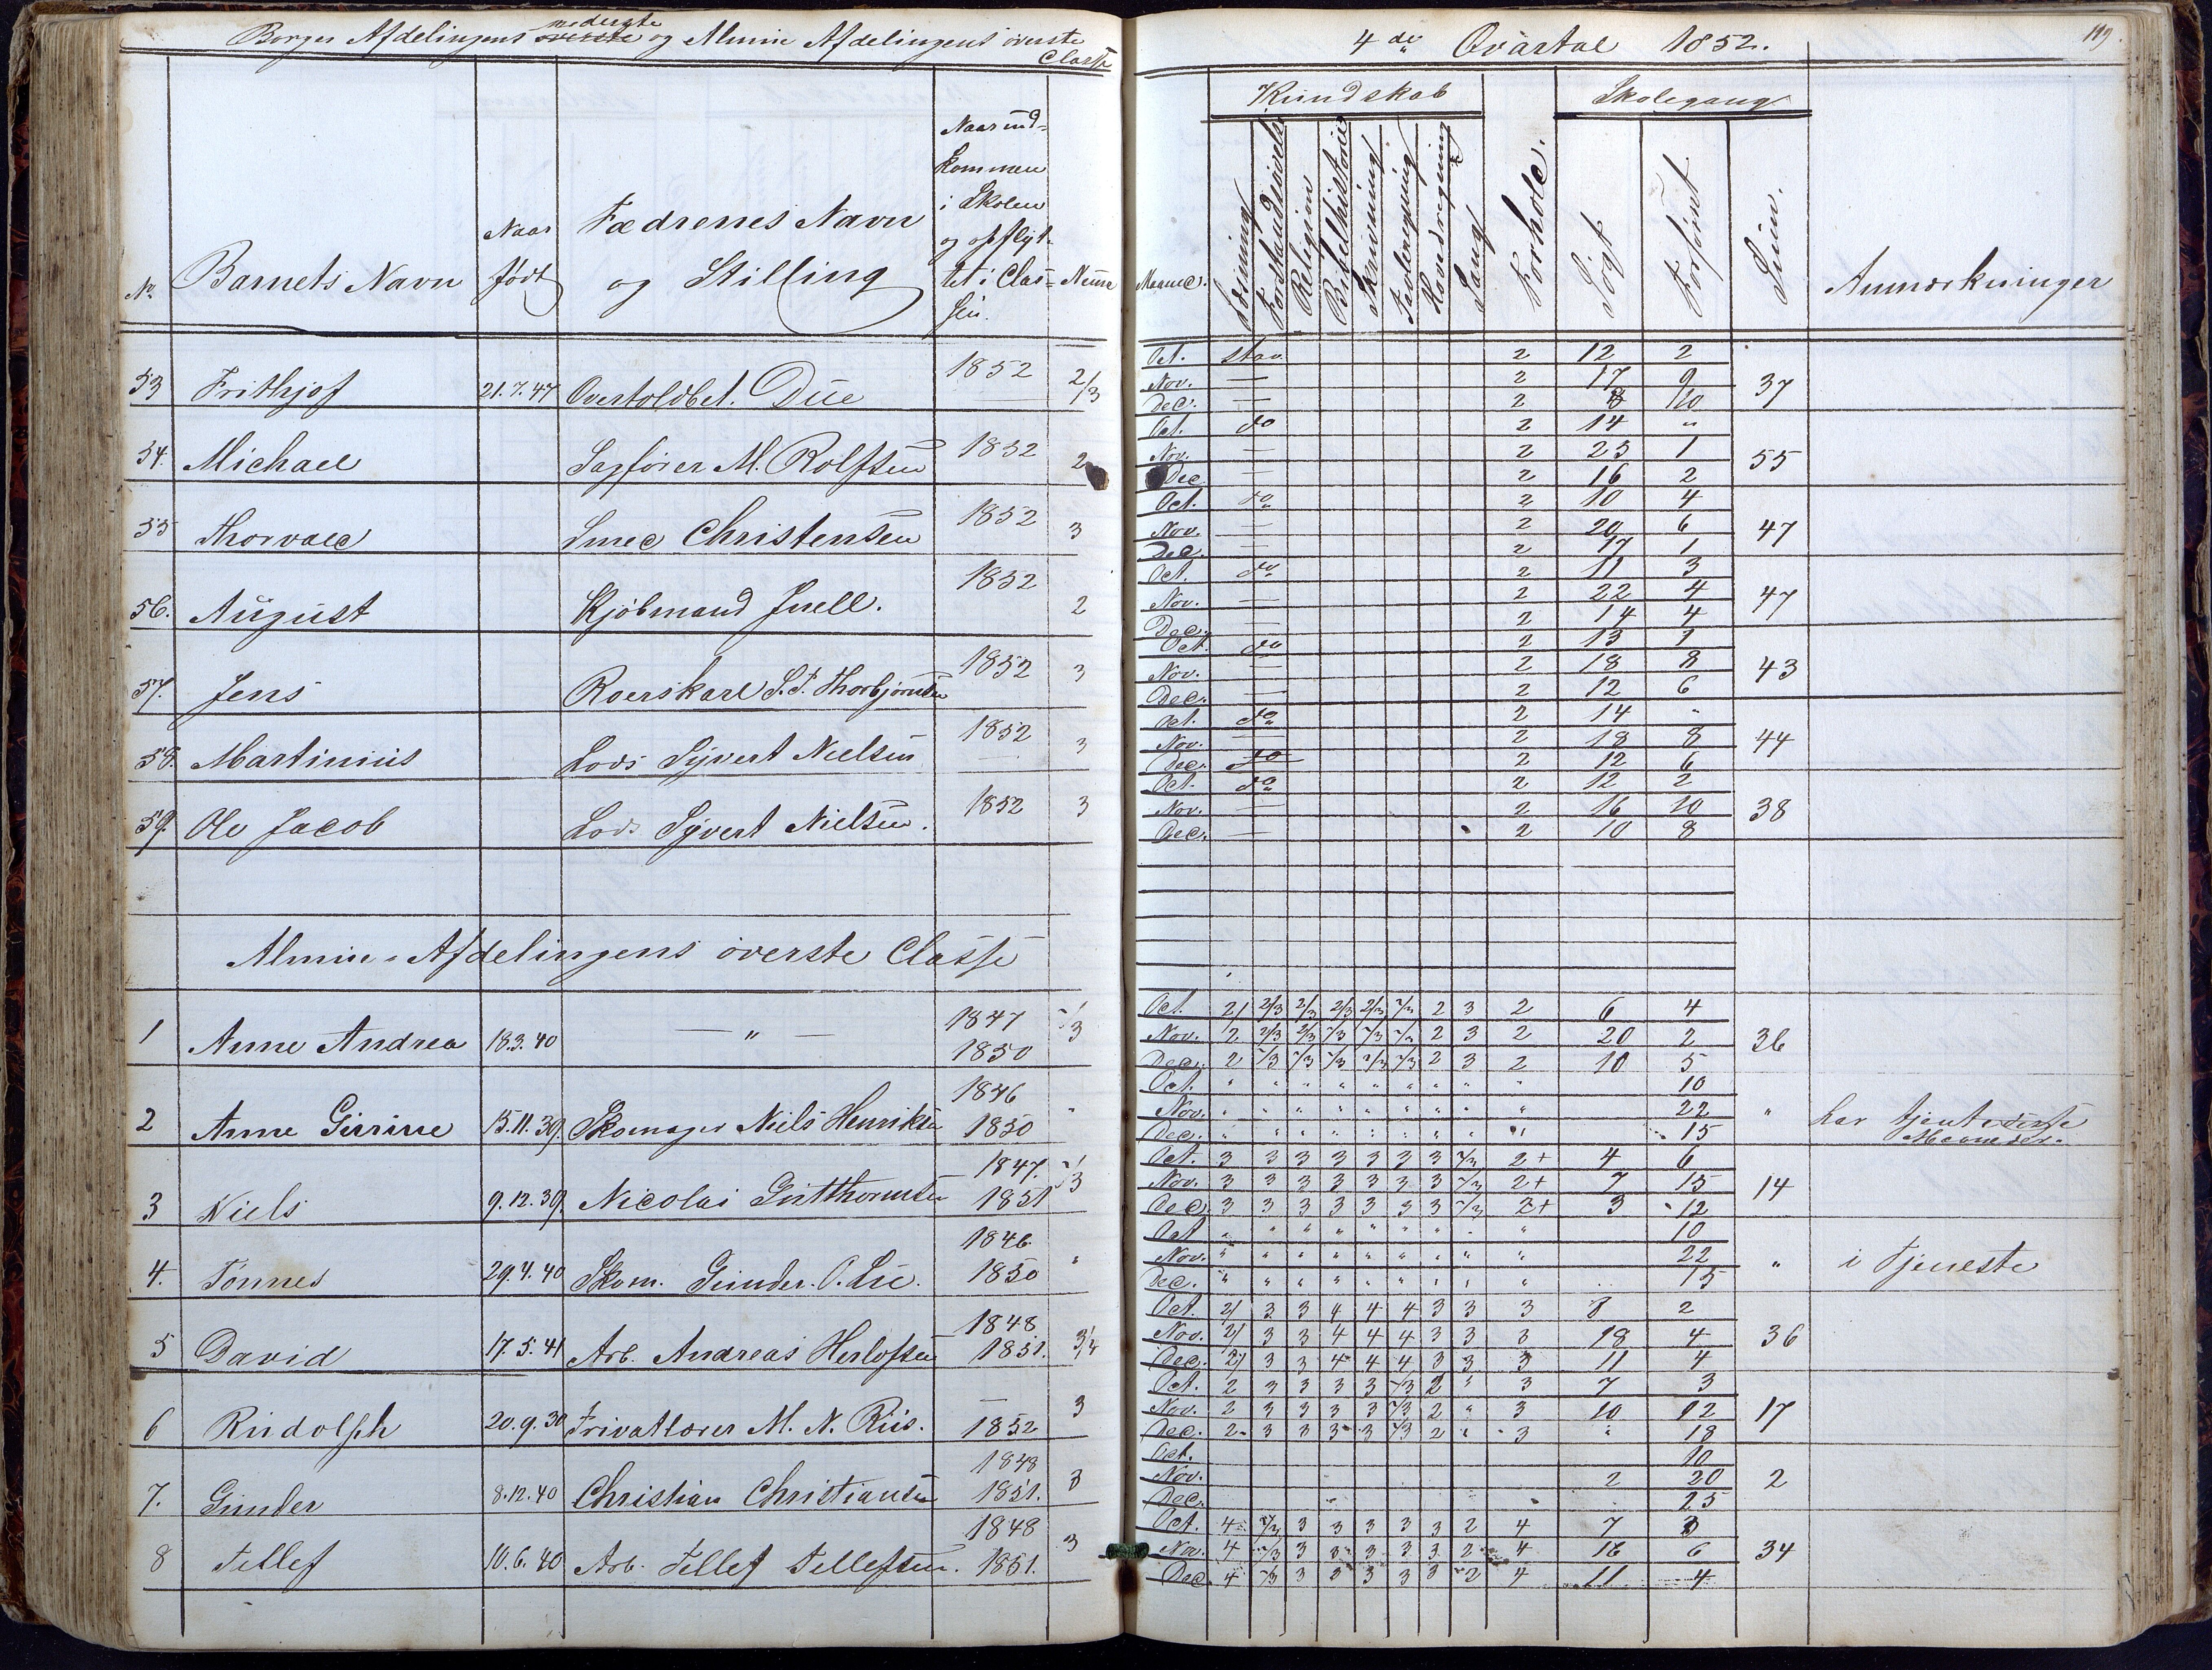 Borger Afdelingens nederste og Almin Afdelingens överste Classe
4de Qvartal 1852.
119.
Kundskab
Skolegang
No.
Barnets Navn
Naar født
Fædrenes Navn og Stilling
Naar ind-
kommen
i Skolen
og opflyt-
tet i Clas-
sen.
Nemme
Maaned.
Læsning
Forstandsøvelse
Religion
Bibelhistorie
Skrivning
Tavleregning
Hovedregning
Sang
Forhold.
Søgt
Forsømt
Sum.
Anmærkninger
53 Frithjof 21.7.47 Overtoldbet. Due 1852 2/3
Oct. stav 2 12 2
Nov. — 2 17 9 37
Dec. — 2 8 10
54. Michael Sagfører M. Rolfsen 1852 2
Oct. do 2 14 "
Nov. — 2 25 1 55
Dec — 2 16 2
55 Thorvald Smed Christensen 1852 3
Oct. do 2 10 4
Nov. — 2 20 6 47
Dec. — 2 17 1
56. August Kjöbmand Juell. 1852 2
Oct. do 2 11 3
Nov. — 2 22 4 47
Dec. — 2 14 4
57. Jens Roerskarl S. T. Thorbjörnsen 1852 3
Oct. do 2 13 1
Nov. — 2 18 8 43
Dec. — 2 12 6
58. Martinius Lods Syvert Nielsen 1852 3
Oct. do 2 14 "
Nov. — 2 18 8 44
Dec. do 2 12 6
59. Ole Jacob Lods Syvert Nielsen. 1852 3
Oct. do 2 12 2
Nov. — 2 16 10 38
Dec. — 2 10 8
Almin. Afdelingens överste Classe
1 Anne Andrea 18.3.40 — " — 1847 1850
Oct. 2/ 2/3 2/3 2/3 2/3 2/3 2 3 2 6 4
Nov. 2 2/3 2/3 2/3 2/3 2/3 2 3 2 20 2 36
Dec. 2 2/3 2/3 2/3 2/3 2/3 2 3 2 10 5
2 Anne Gurine 15.11.39. Skomager Niels Henriksen 1846 1850 "
Oct. " " " " " " " " " 10
Nov. " " " " " " " " " 22 " har tjent disse
Dec. " " " " " " " " " 15 Maaneder.
3 Niels 9.12.39. Nicolai Gutthormsen 1847. 1851
Oct. 3 3 3 3 3 3 3 2/3 2+ 4 6
Nov. 3 3 3 3 3 3 3 2/3 2+ 7 15 14
Dec. 3 3 3 3 3 3 3 2/3 2+ 3 12
4. Tönnes 29.4.40 Skom. Gunder O. Lie. 1846. 1850 "
Oct. " " " " " " " " " 10
Nov. " " " " " " " " " 22 " i Tjeneste
Dec. " " " " " " " " " 15
5 David 17.5.41 Arb. Andreas Herlofsen 1848 1851. 3/4
Oct. 2/ 3 3 4 4 4 3 3 3 8 2
Nov. 2/ 3 3 4 4 4 3 3 3 18 4 36
Dec. 2/ 3 3 4 4 4 3 3 3 11 4
6 Rudolph 20.9.30 Privatlærer M. N. Riis. — 1852 3
Oct. 2 3 3 3 3 2/3 2 " 3 7 3
Nov. 2 3 3 3 3 2/3 2 " 3 10 12 17
Dec. 2 3 3 3 3 2/3 2 " 3 " 18
7. Gunder 8.12.40 Christian Christiansen 1848 1851. 3
Oct. 10
Nov. 2 20 2
Dec. 25
8 Tellef 10.6.40 Arb. Tellef Tellefsen. 1848 1851. 3
Oct. 4 2/3 3 3 3 3 3 2 4 7 3
Nov. 4 2/3 3 3 3 3 3 2 4 16 6 34
Dec. 4 2/3 3 3 3 3 3 2 4 11 4